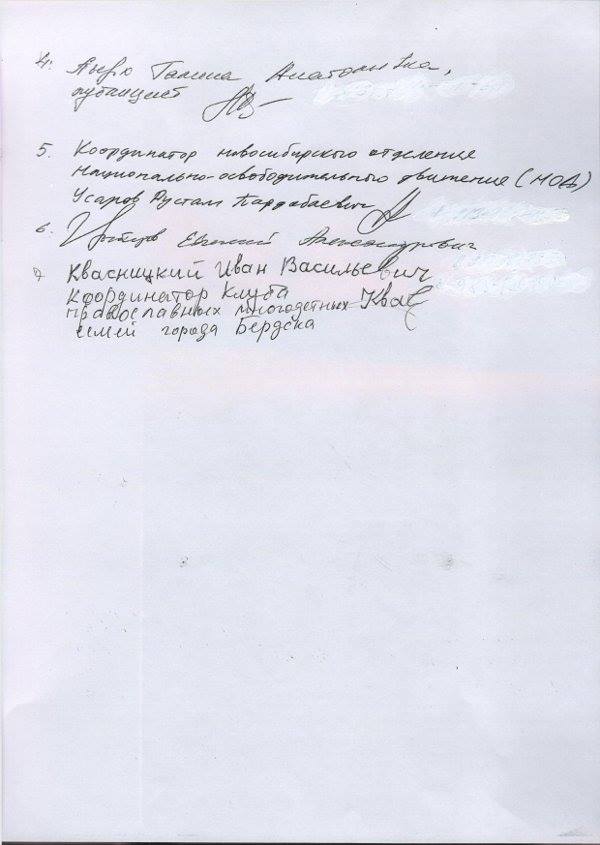 4. Галина Анатольевна,
публицист
5. Координатор новосибирского отделение
Национально-освободительного движение (НОД)
Усаров Рустам
6. Евгений Александрович
7 Квасницкий Иван Васильевич
координатор Клуба
православных многодетных Квас
семей города Бердска